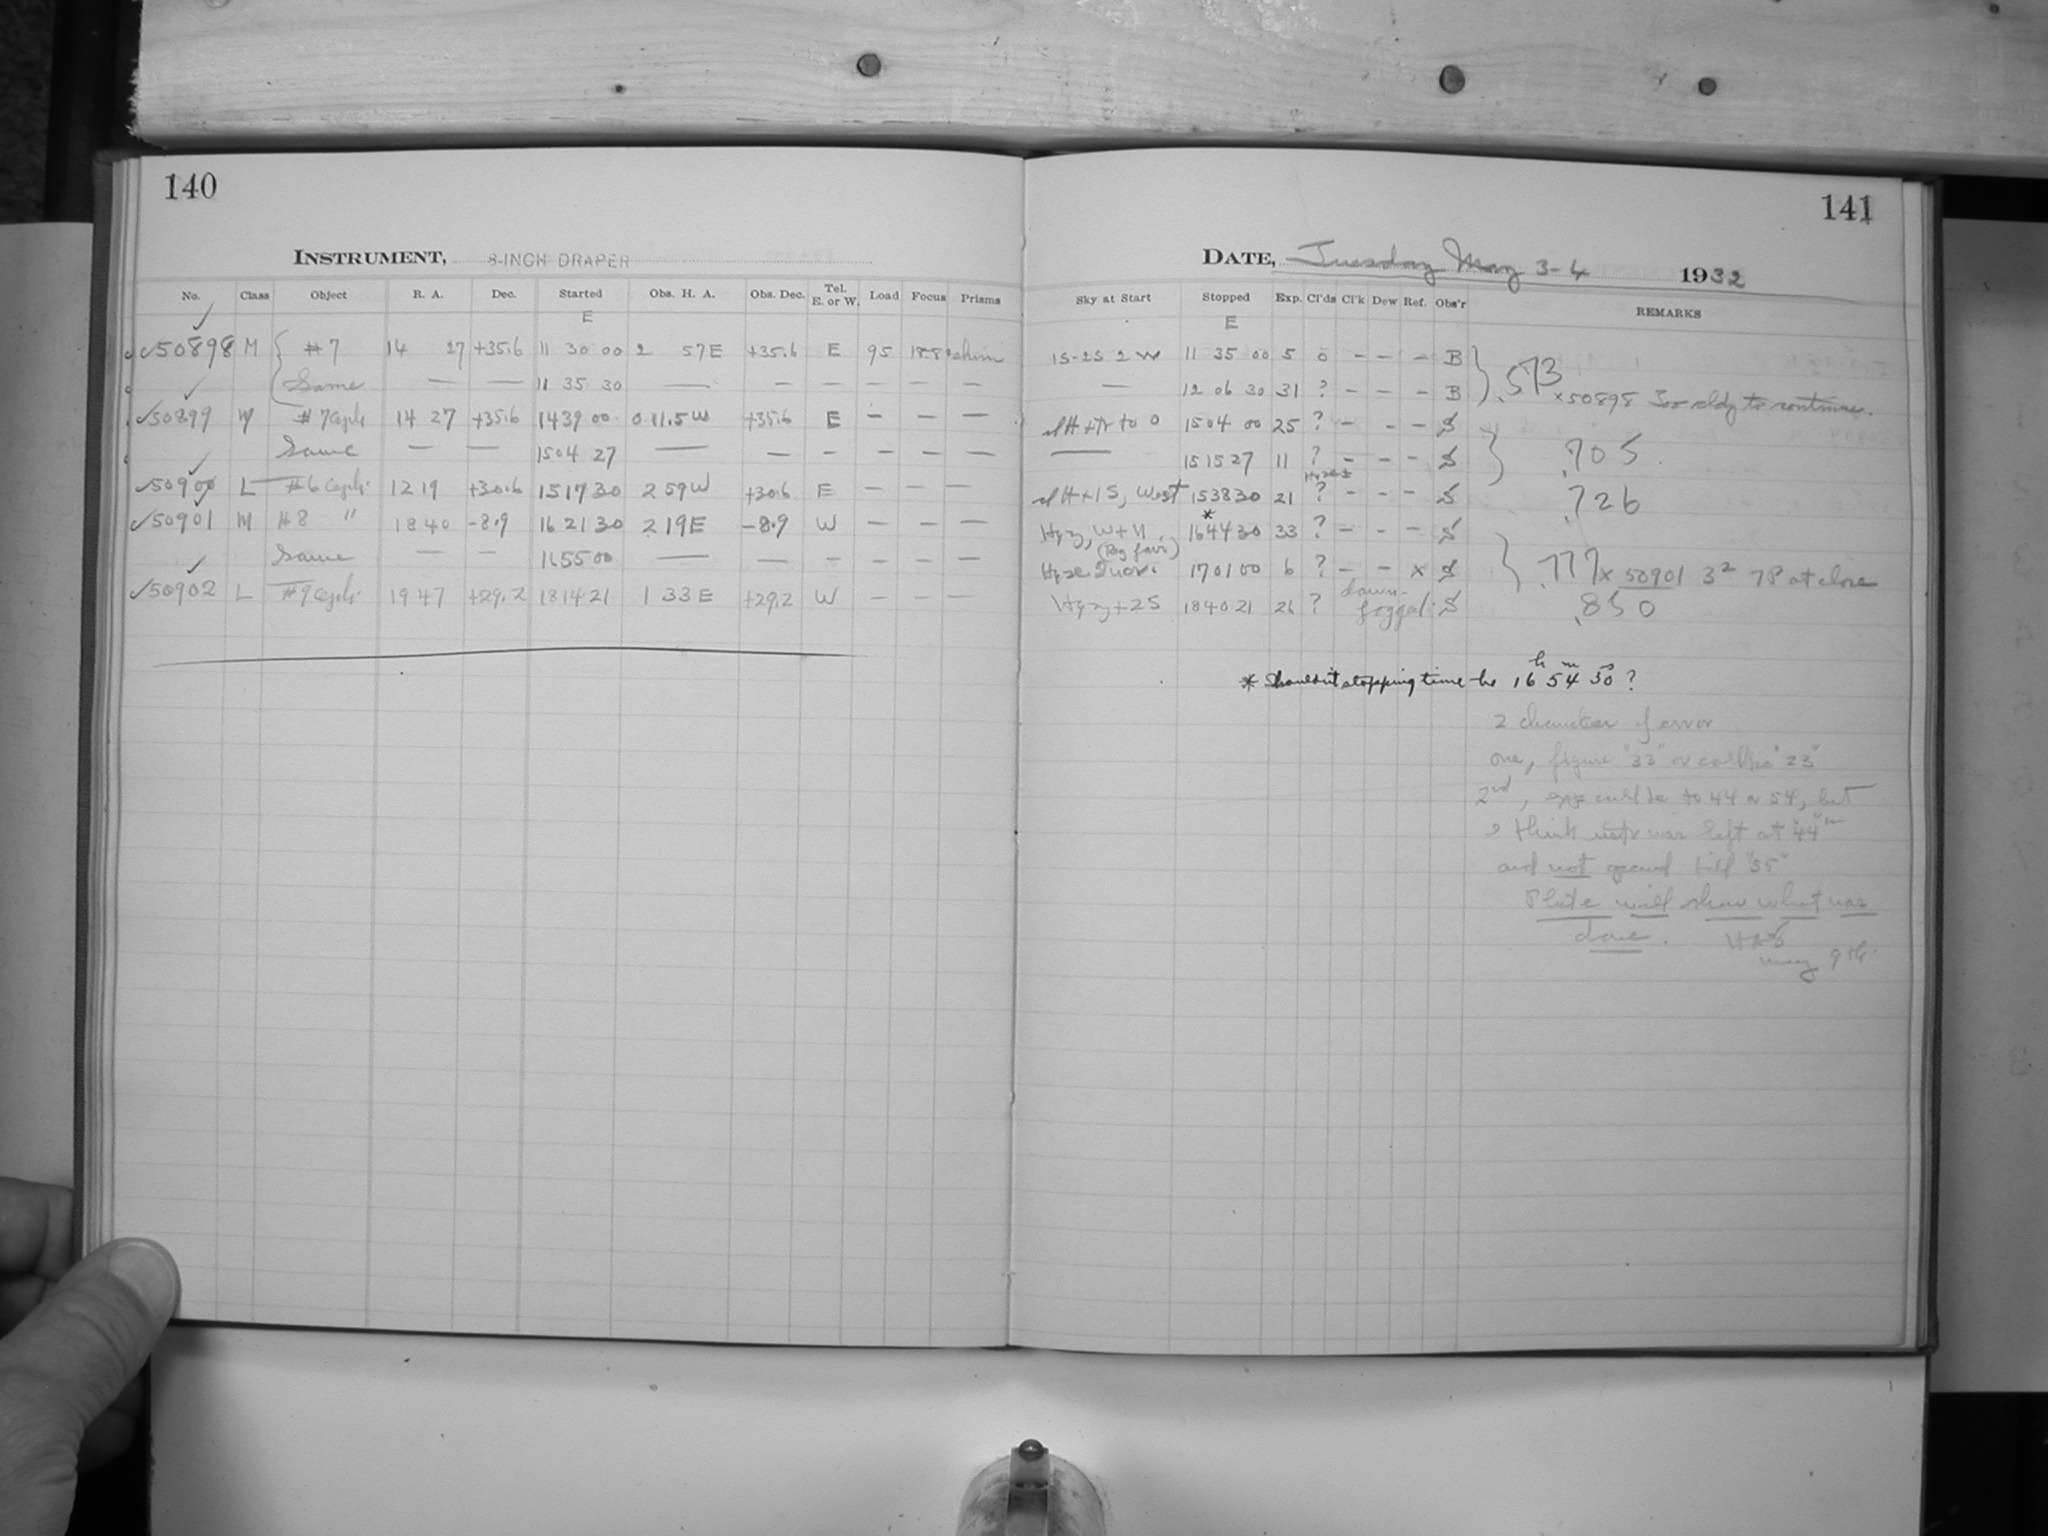 140
INSTRUMENT, 8-INCH DRAPER
No. Class Object R. A. Dec. Started Obs. H. A. Obs. Dec. Tel. E. or W. Load Focus Prisms
E
✓50898 M #7 14 27 +35.6 11 30 00 2 57E +35.6 E 95 18.8
Same — — 11 35 30 — — — — — —
✓50899 M #7 Cephs 14 27 +35.6 14 39 00 0 11.5W +35.6 E — — —
Same — — 15 04 27 — — — — — —
✓50900 L #6 Cephs 12 19 +30.6 15 17 30 2 59W +30.6 E — — —
✓50901 M #8 " 18 40 -8.9 16 21 30 2 19E -8.9 W — — —
Same — — 16 55 00 — — — — — —
✓50902 L #9 Cephs 19 47 +29.2 18 14 21 1 33 E +29.2 W — — —
141
DATE, Tuesday May 3-4 1932
Sky at Start Stopped Exp. Cl'ds Cl'k Dew Ref. Obs'r REMARKS
E
1S-2S 2W 11 35 00 5 0 — — — B
— 12 06 30 31 ? — — — B .573
×50898 Too cldy to continue.
to 0 15 04 00 25 ? — — — S
— 15 15 27 11 ? — — — S .705
+1S, West 15 38 30 21 ? — — — S .726
Hazy, W+N * 16 44 30 33 ? — — — S
Haze 17 01 00 6 ? — — × S .777 × 50901 3² 7P at close
Hazy + 2S 18 40 21 26 ? dawn-fogged. S .850
* Shouldn't stopping time be 16ʰ 54ᵐ 30ˢ?
2 chances of error
one, figure "33" or "23"
2nd, to 44 or 54, but
I think was left at "44"
and not opened till "55"
Plate will show what was
done.
May 9th.